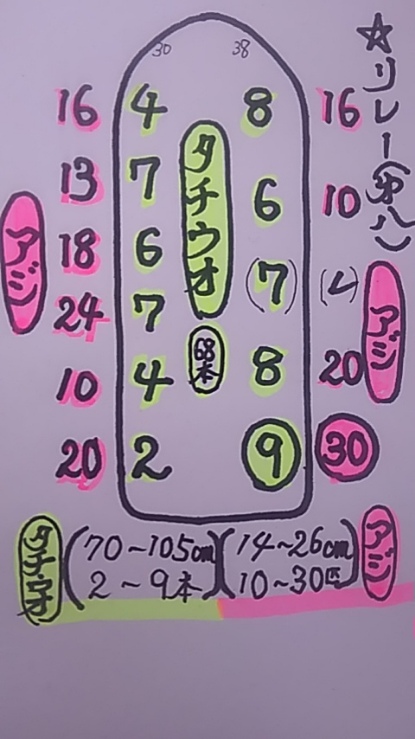 ☆リレー(第八)
30 38
16 4 8 16
13 7 6 10
タチウオ
アジ
18 6 (7) (レ)
アジ
24 7
68本
10 4 8 20
20 2 9 30
タチウオ (70~105cm)(14~26cm) アジ
2~9本 10~30匹